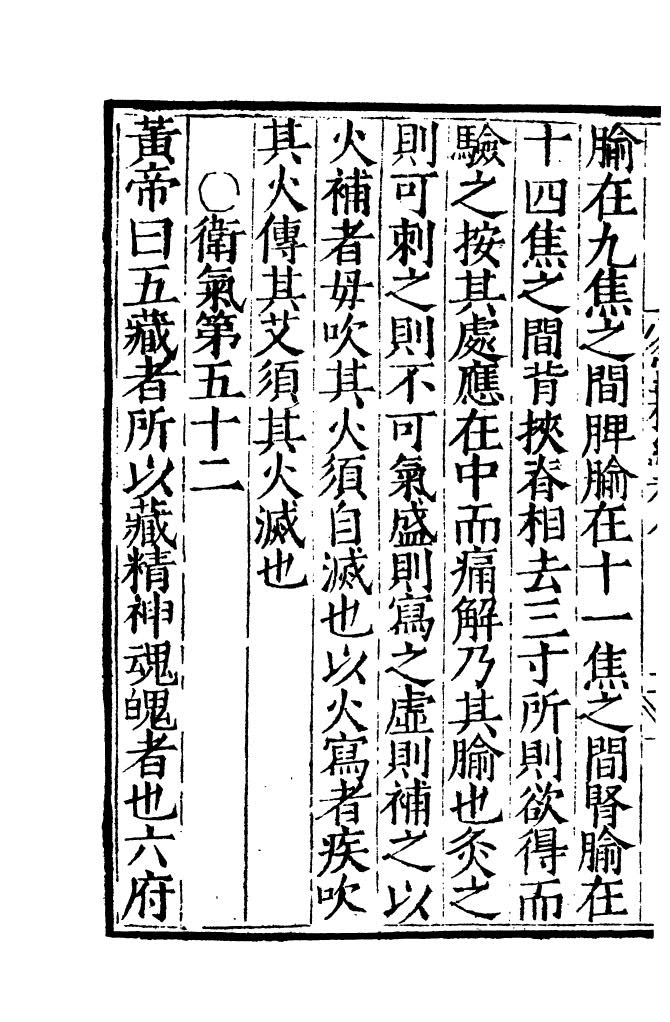 腧在九焦之間脾腧在十一焦之間腎腧在
十四焦之間背挾脊相去三寸所則欲得而
驗之按其處應在中而痛解乃其腧也灸之
則可刺之則不可氣盛則寫之虛則補之以
火補者毋吹其火須自滅也以火寫者疾吹
其火傳其艾須其火滅也
○衛氣第五十二
黃帝曰五藏者所以藏精神魂魄者也六府